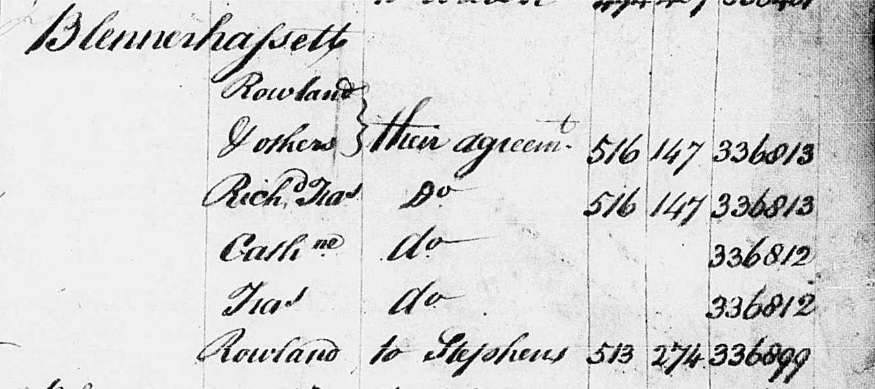 Blennerhassett
Rowland
& others } their agreemt. 516 147 336813
Richd. Fras Do 516 147 336813
Cathne do 336812
Fras do 336812
Rowland to Stephens 513 274 336899